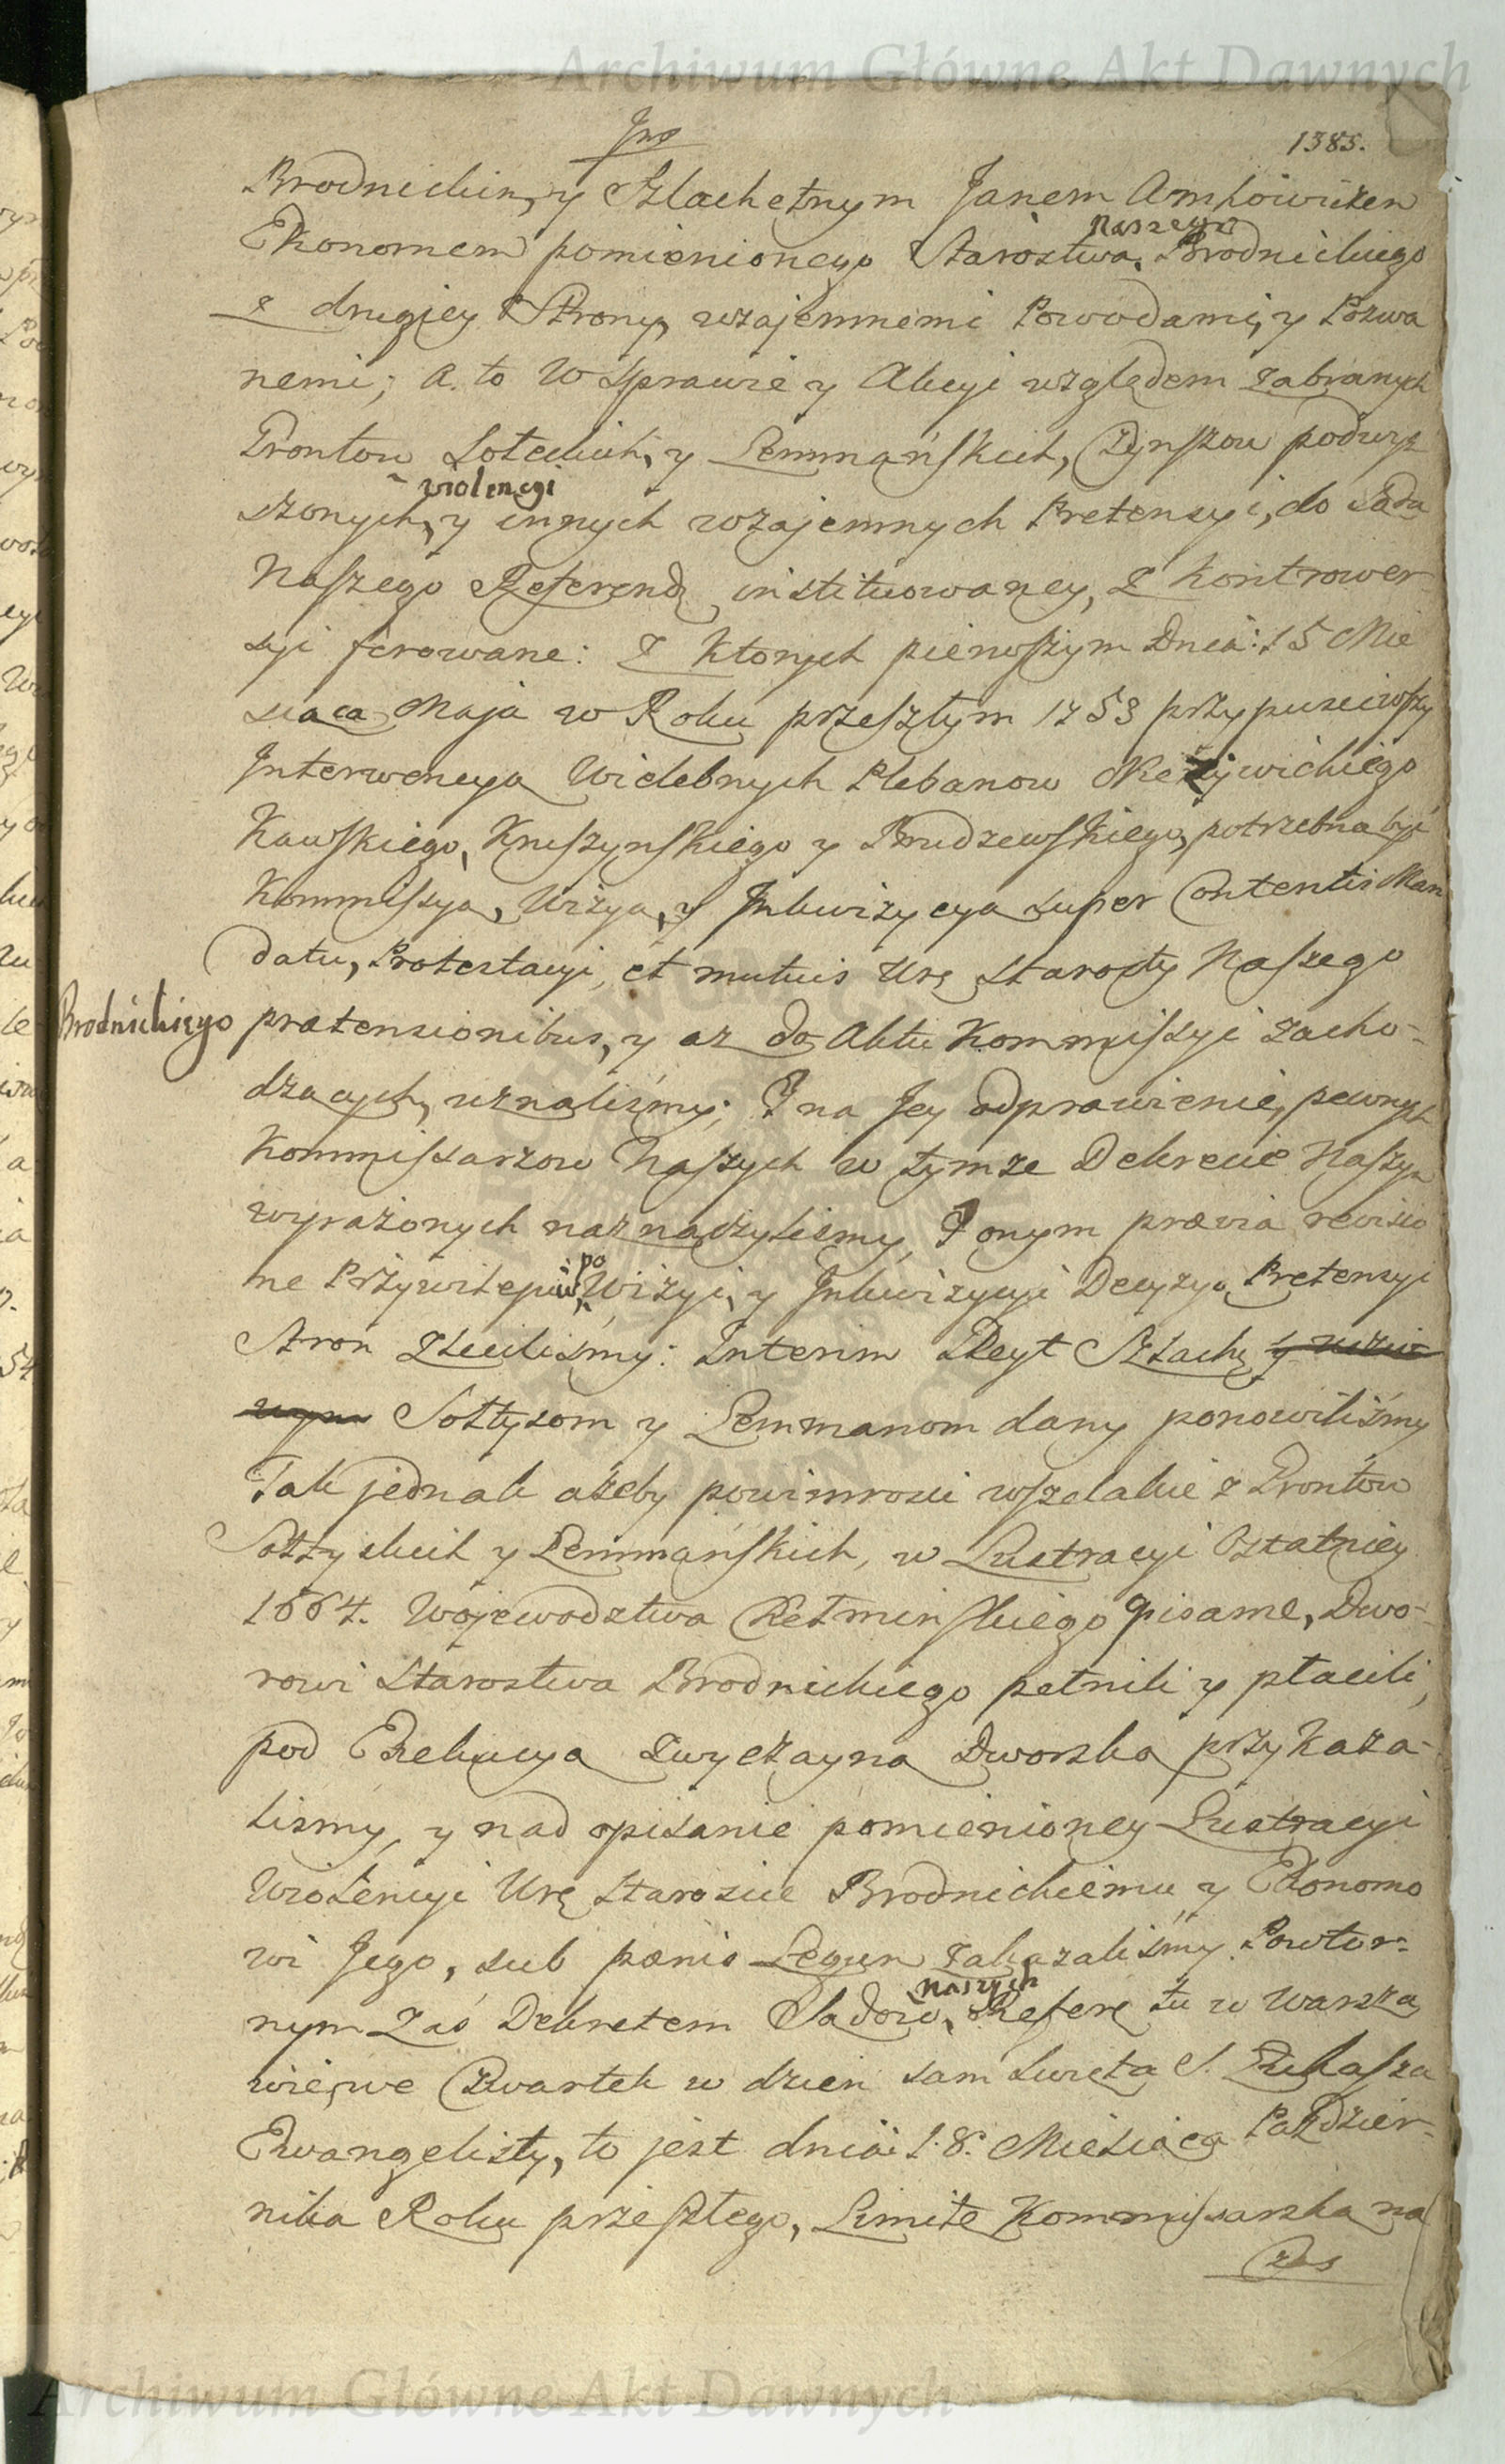 Archiwum Główne Akt Dawnych
1385.
Brodnickim, y Szlachetnym Janem
Ekonomem pomienionego Starostwa naszego Brodnickiego
z drugiey Strony, wzajemnemi Powodami, y Pozwa
nemi; a to w Sprawie y Akcyi względem zabranych
Grontow Sołeckich, y Lemmańskich, Czynszow podwyż
szonych, violencyi y innych wzajemnych Pretensyi, do Sądu
Naszego Referend instituowaney, z kontrower-
syi ferowane: z ktorych pierwszym Dnia: 15 Mie
siąca Maja w Roku przeszłym 1753 przypusciwszy
Interwencyą Wielebnych Plebanow
Kawskiego, Kruszynskiego y Brudzewskiego, potrzebną być
Kommissyą, Wizyą, y Inkwizycyą super Contentis Man
datu, Protestacyi, et mutuis Urę Starosty Naszego
Brodnickiego prætensionibus, y aż do Aktu Kommissyi zacho-
dzących, uznaliśmy; I na Jey odprawienie, pewnych
Kommissarzow Naszych w tymże Dekrecie Naszym
wyrażonych naznaczyliśmy, I onym prævia revisio
ne Przywilejow, po Wizyi, y Inkwizycyi Decyzyą Pretensyi
Stron zleciliśmy: Interim Gleyt Szlachę
Sołtysom y Lemmanom dany ponowiliśmy
Tak jednak ażeby powinnosci wszelakie z Grontow
Sołtyskich y Lemmańskich, w Lustracyi Ostatniey
1664. Wojewodztwa Chełminskiego opisane, Dwo-
rowi Starostwa Brodnickiego pełnili y płacili,
pod Exekucyą zwyczayną Dworską przykaza-
lismy, y nad opisanie pomienioney Lustracyi
Wiolencyi Urę Staroscie Brodnickiemu y Ekonomo
wi Jego, sub pænis Legum zakazaliśmy. Powtor-
nym zaś Dekretem Sądow naszych Referę tu w Warsza
wie, we Czwartek w dzien sam Swięta S. Łukasza
Ewangelisty, to jest dnia: 18: Miesiąca Paździer-
nika Roku przeszłego, Limitę Kommissarską na
Czas
Archiwum Główne Akt Dawnych